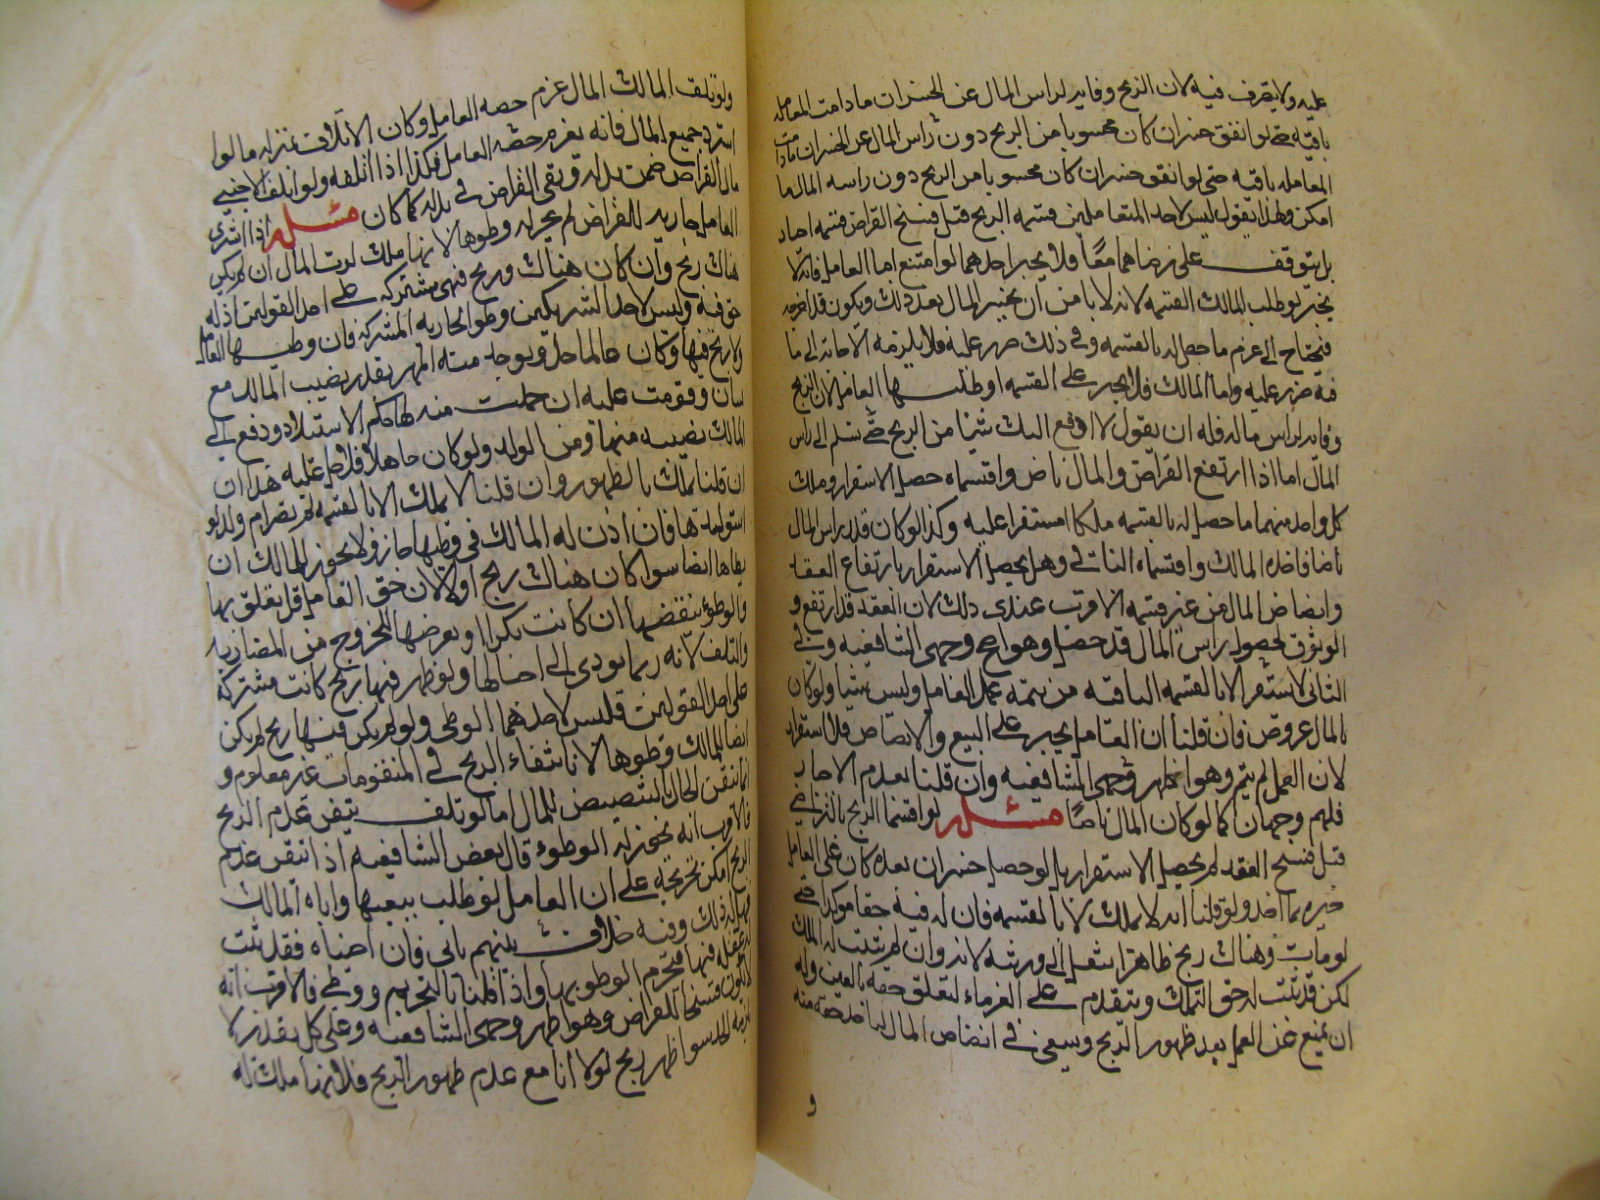 عليه ولا يتصرف فيه لان الربح وقاية لراس المال عن الخسران ما دامت المعاملة
باقية حتى لو اتفق خسران كان محسوبا من الربح دون راس المال عن الخسران مادامت
المعاملة باقية حتى لو اتفق خسران كان محسوبا من الربح دون راسه المال ما
امكن ولهذا يقول ليس لاحد المتعاملين قسمة الربح قبل فسخ القراض قسمة اجبار
بل يتوقف على رضاهما معًا فلا يجبر احدهما لو امتنع اما العامل فانه لا
يجبر لو طلب المالك القسمة لانه لا يامن ان يخسر المال بعد ذلك ويكون قد اخرجه
فيحتاج الى غرم ما حصل له بالقسمة وفي ذلك ضرر عليه فلا يلزمه الاجابة الى ما
فيه ضرر عليه واما المالك فلا يجبر على القسمة لو طلبها العامل لان الربح
وقاية لراس ماله فله ان يقول لا ادفع اليك شيئا من الربح حتى تسلم الى راس
المال اما اذا ارتفع القراض والمال ناض واقتسماه حصل الاستقرار وملك
كل واحد منهما ما حصل له بالقسمة ملكا مستقرا عليه وكذا لو كان قدر راس المال
ناضا فاخذه المالك واقتسماه الباقي وهل يحصل الاستقرار بارتفاع العقد
وانضاض المال من غير قسمة الاقرب عندي ذلك لان العقد قد ارتفع و
الوثوق بحصول راس المال قد حصل وهو اصح وجهي الشافعية وفي
الثاني لا يستقر الا بالقسمة الباقية من تتمة عمل العامل وليس شيئا ولو كان
بالمال عروض فان قلنا ان العامل يجبر على البيع والانضاض فلا استقرار
لان العمل لم يتم وهو اظهر وجهي الشافعية وان قلنا بعدم الاجبار
فلهم وجهان كما لو كان المال ناضا مسئلة لو اقتسما الربح بالتراضي
قبل فسخ العقد لم يحصل الاستقرار بل لو حصل خسران بعده كان على العامل
جبره بما اخذ ولو قلنا انه لا يملك الا بالقسمة فان له فيه حقا موكدا حتى
لو مات وهناك ربح ظاهر انتقل الى ورثته لانه وان لم يثبت له الملك
لكن قد ثبت له حق التملك ويتقدم على الغرماء لتعلق حقه بالعين وله
ان يمتنع عن العمل بعد ظهور الربح ويسعى في انضاض المال لياخذ حقه منه
و
ولو تلف المالك المال غرم حصه العامل وكان الاتلاف بمنزلة ما لو
استرد جميع المال فانه يغرم حصة العامل فكذا اذا اتلفه ولو اتلف الاجنبي
مال القراض ضمن بدله وبقي القراض في بدله كما كان مسئلة اذا اشترى
العامل جارية للقراض لم يجز له وطوها لانها ملك لرب المال ان لم يكن
هناك ربح وان كان هناك وربح فهي مشتركه على احد القولين اذ له
حق فيه وليس لاحد الشريكين وطو الجارية المشتركة فان وطئها العامل
ولا ربح فيها وكان عالما حد ويوخذ منه المهر بقدر نصيب المالك مع
وقومت عليه ان حملت منه لها حكم الاستيلاد ودفع الى
المالك نصيبه منها ومن الولد ولو كان جاهلا فلا حد عليه هذا ان
ان قلنا يملك بالظهور وان قلنا لا يملك الا بالقسمة لم تصر ام ولد لو
استولدها فان اذن له المالك في وطيها جاز ولا يجوز للمالك ان
يطاها ايضا سوا كان هناك ربح اولا لان حق العامل قد تعلق بها
والوطو ينقضها ان كانت بكرا او يعرضها للخروج من المضاربة
والتلف لانه ربما يودى الى احبالها ولو ظهر فيها ربح كانت مشتركة
على احد القولين فليس لاحدهما الوطى ولو لم يكن فيها ربح لم يكن
ايضا للمالك وطوها لان انتفاء الربح في المتقومات غير معلوم و
انما يتقن الحال بالتنصيض للمال اما لو تلف يتقن عدم الربح
فالاقرب انه يجوز له الوطوء قال بعض الشافعية اذا اتيقن عدم
الربح امكن تخريجه على ان العامل لو طلب بيعها واباه المالك
فهل له ذلك وفيه خلاف بينهم ياتي فان اجبناه فقد ثبت
له علقة فيها فيحرم الوطو بها واذا قلنا بالتحريم ووطى فالاقرب انه
لا يكون فسخا للقراض وهو اظهر وجهي الشافعية وعلى كل تقدير لا
يلزمه الحد سوا ظهر ربح اولا انا مع عدم ظهور الربح فلانها ملك له